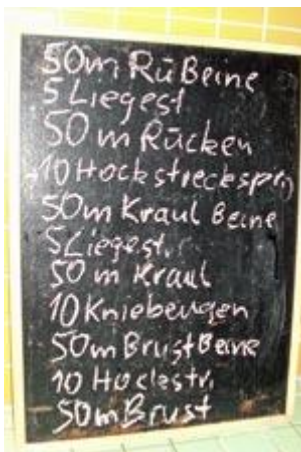 50m Rü Beine
5 Liegest
50 m Rücken
10 Hockstrecksprg
50m Kraul Beine
5 Liegest.
50 m Kraul
10 Kniebeugen
50m Brust Beine
10 Hockstr.
50m Brust